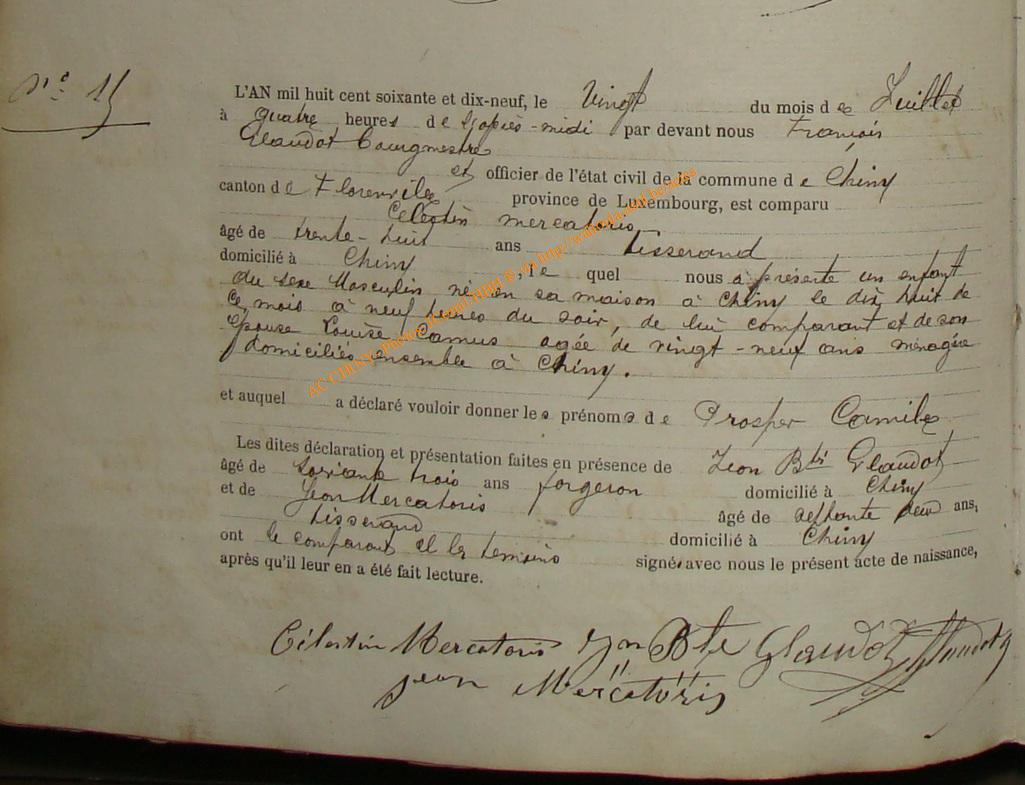 N° 15
L'AN mil huit cent soixante et dix-neuf, le Vingt du mois de Juillet
à quatre heures de l'après-midi par devant nous François
Glaudot Bourgmestre
et officier de l'état civil de la commune de Chiny
canton de Florenville province de Luxembourg, est comparu
Celestin mercatoris
âgé de trente-huit ans tisserand
domicilié à Chiny, le quel nous à présenté un enfant
du sexe Masculin né en sa maison à Chiny le dix huit de
ce mois à neuf heures du soir, de lui comparant et de son
épouse Louise Camus agée de vingt-neuf ans ménagère
domiciliés ensemble à Chiny.
et auquel a déclaré vouloir donner les prénoms de Prosper Camile
Les dites déclaration et présentation faites en présence de Jean Bte Glaudot
âgé de soixante trois ans forgeron domicilié à Chiny
et de Jean Mercatoris âgé de septante deux ans,
tisserand domicilié à Chiny
ont le comparant et les temoins signés avec nous le présent acte de naissance,
après qu'il leur en a été fait lecture.
Célestin Mercatoris Jean Bte Glaudot Glaudot
jean Mercatoris